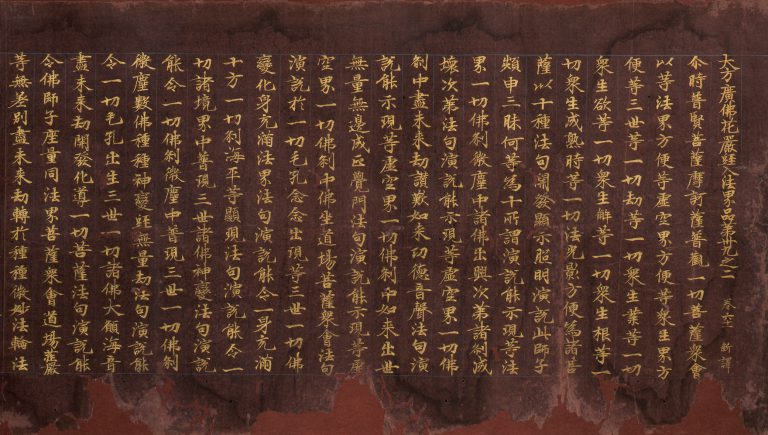 大方廣佛花嚴経入法界品第卅九之二 卷六十一 新譯
尒時普賢菩薩摩訶薩普觀一切菩薩衆會
以等法界方便等虛空界方便等衆生界方
便等三世等一切劫等一切衆生業等一切
衆生欲等一切衆生解等一切衆生根等一
切衆生成熟時等一切法光影方便為諸菩
薩以十種法句開發顯示照明演說此師子
頻申三昧何等為十所謂演說能示現等法
界一切佛剎微塵中諸佛出興次第諸剎成
壞次第法句演說能示現等虛空界一切佛
剎中盡未來劫讚歎如來功德音聲法句演
說能示現等虛空界一切佛剎中如來出世
無量無邊成正覺門法句演說能示現等虛
空界一切佛剎中佛坐道場菩薩衆會法句
演說於一切毛孔念念出現等三世一切佛
變化身充滿法界法句演說能令一身充滿
十方一切剎海平等顯現法句演說能令一
切諸境界中普現三世諸佛神變法句演說
能令一切佛剎微塵中普現三世一切佛剎
微塵數佛種種神變經無量劫法句演說能
令一切毛孔出生三世一切諸佛大願海音
盡未來劫開發化導一切菩薩法句演說能
令佛師子座量同法界菩薩衆會道場莊嚴
等無差別盡未來劫轉於種種微妙法輪法